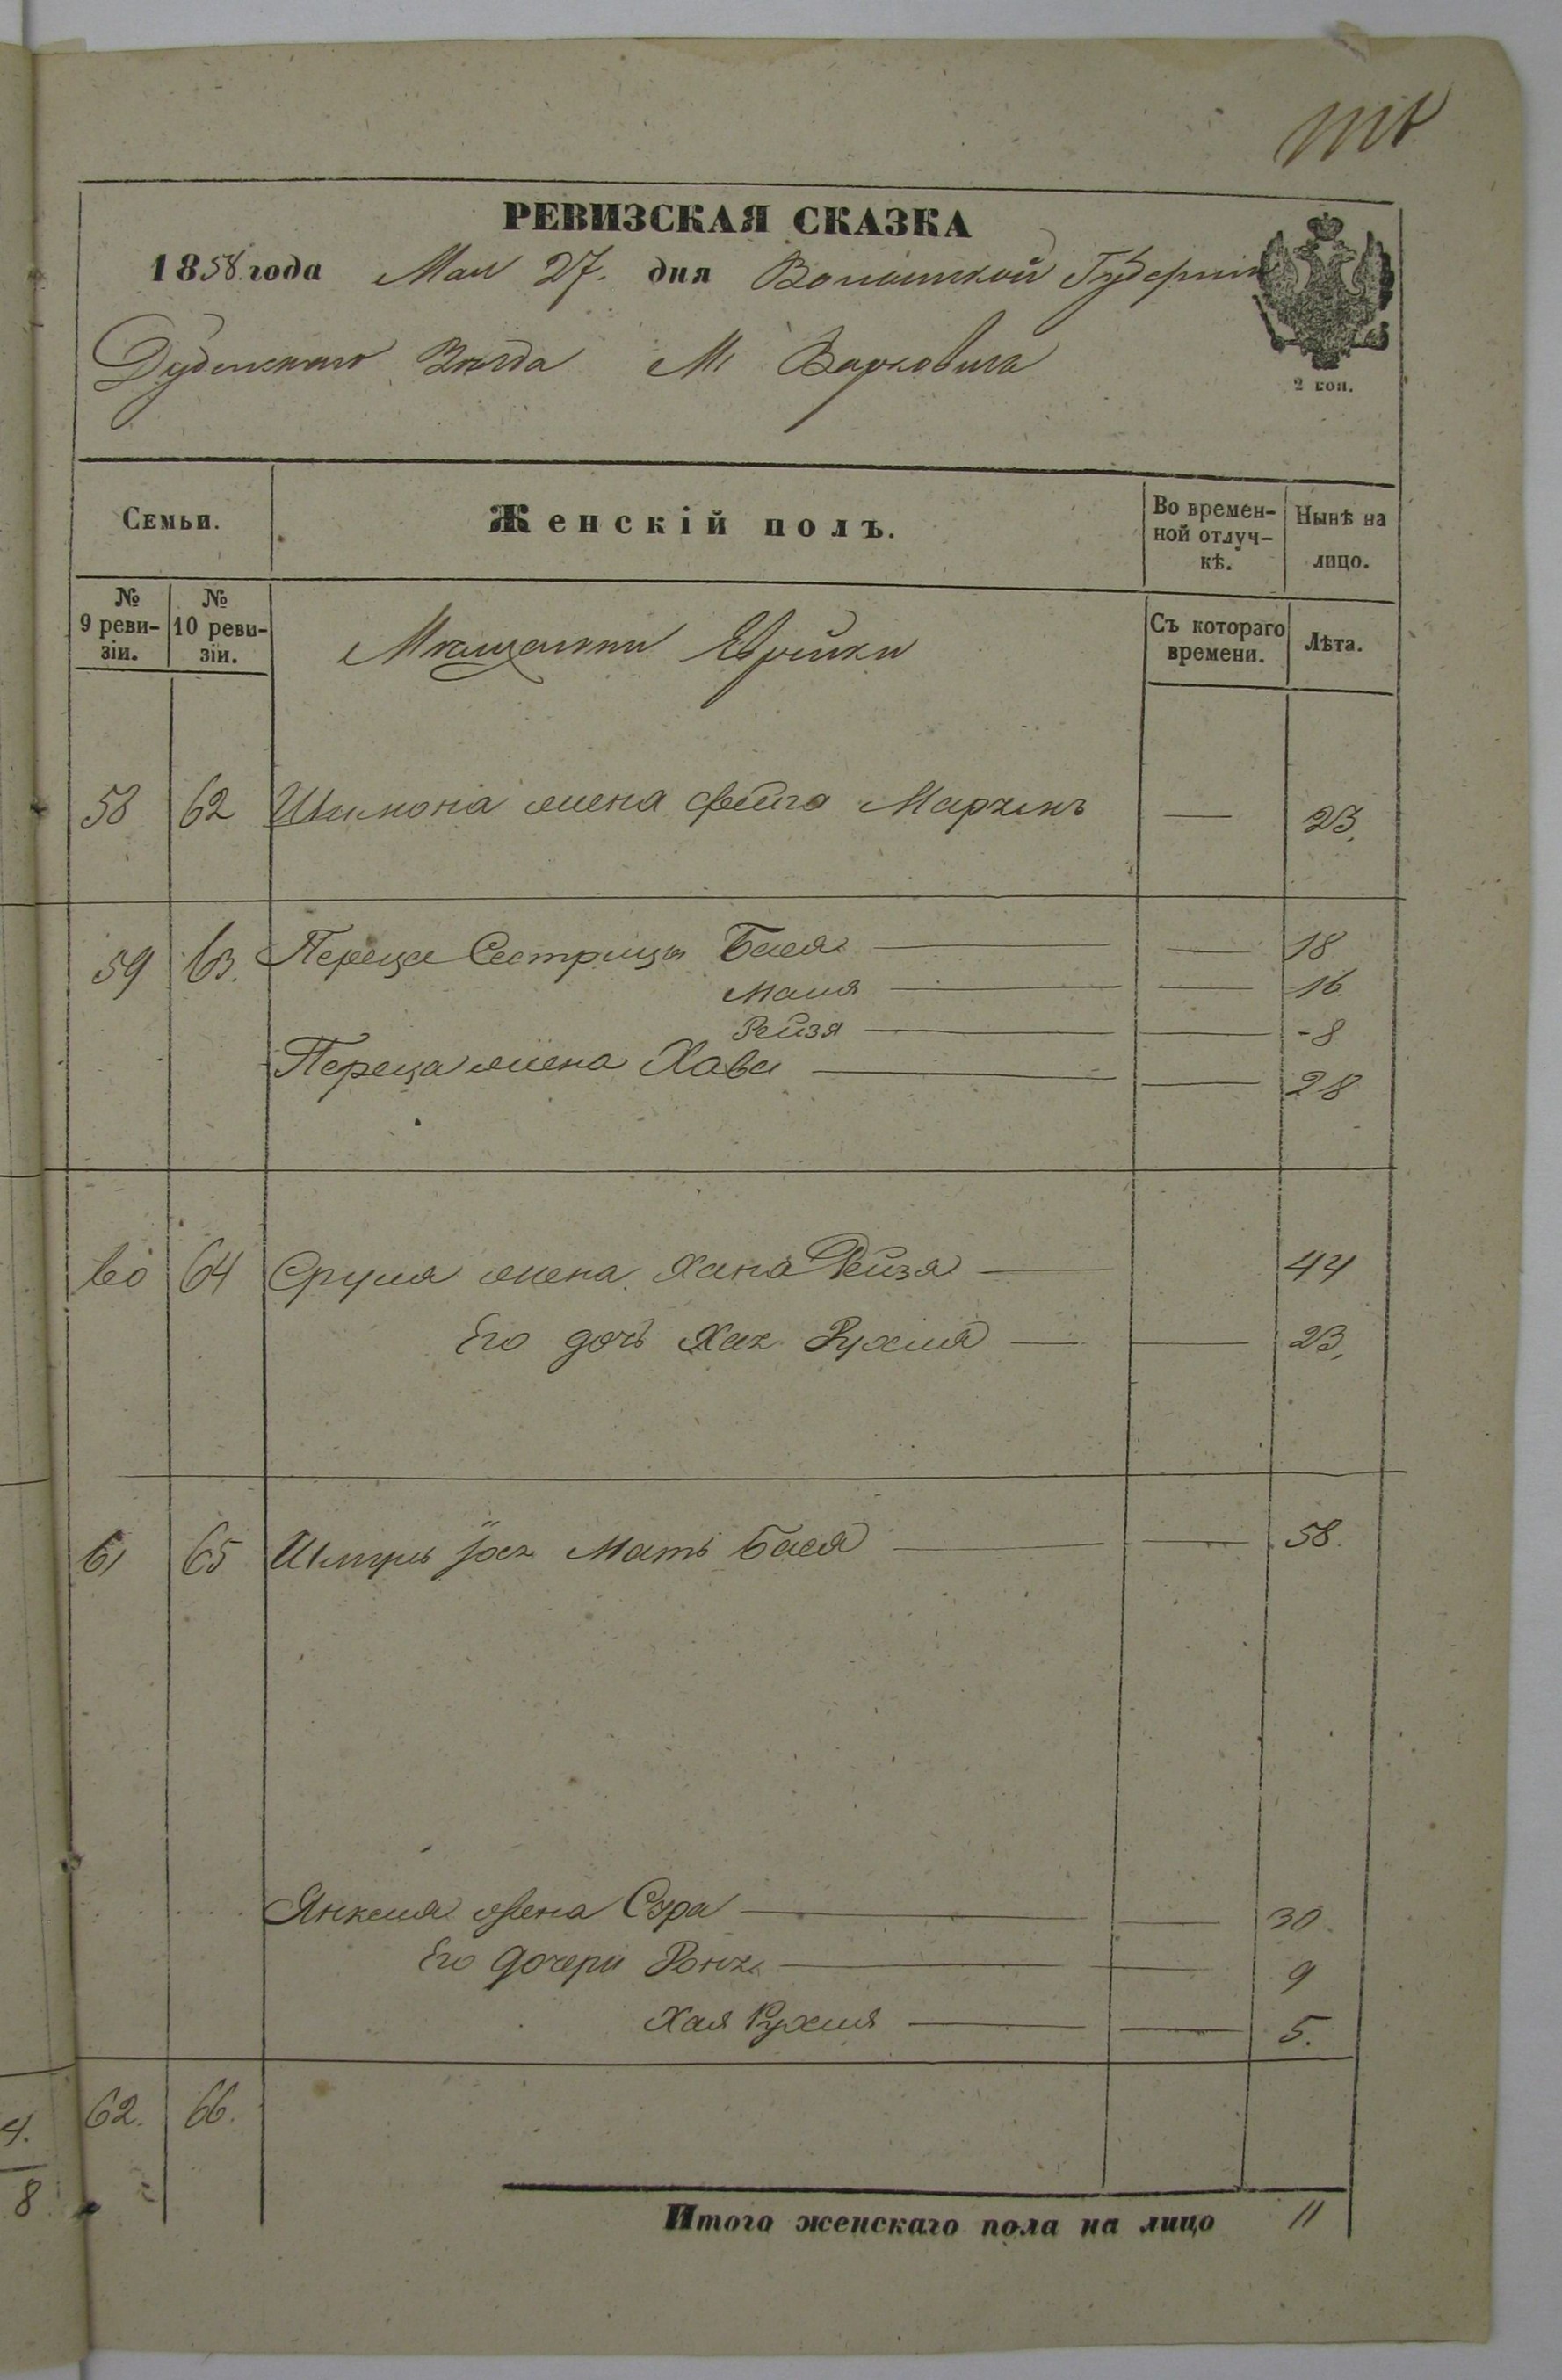 РЕВИЗСКАЯ СКАЗКА
1858 года Мая 27. дня Волынской Губерніи
Дубенскаго Уѣзда М Варковича
2 коп.
Семьи.
Женскій полъ.
Во времен-
ной отлуч-
кѣ.
Нынѣ на
лицо.
№
9 реви-
зіи.
№
10 реви-
зіи.
Мѣщанки Еврейки
Съ котораго
времени.
Лѣта.
58 62 Шимона жена Фейга — 23.
59 63. Переца Сестрицы Бася — — 18
Маля — — 16.
Рейзя — — -8
Переца жена Хава — — 28
60 64 Сруля жена Хана Рейзя — 44
Его дочь Хая Рухля — — 23,
61 65 Мать Бася — — 58.
Янкеля жена Сура — — 30.
Его дочери — — 9
Хая Рухля — — 5.
62. 66.
4.
8
Итого женскаго пола на лицо 11